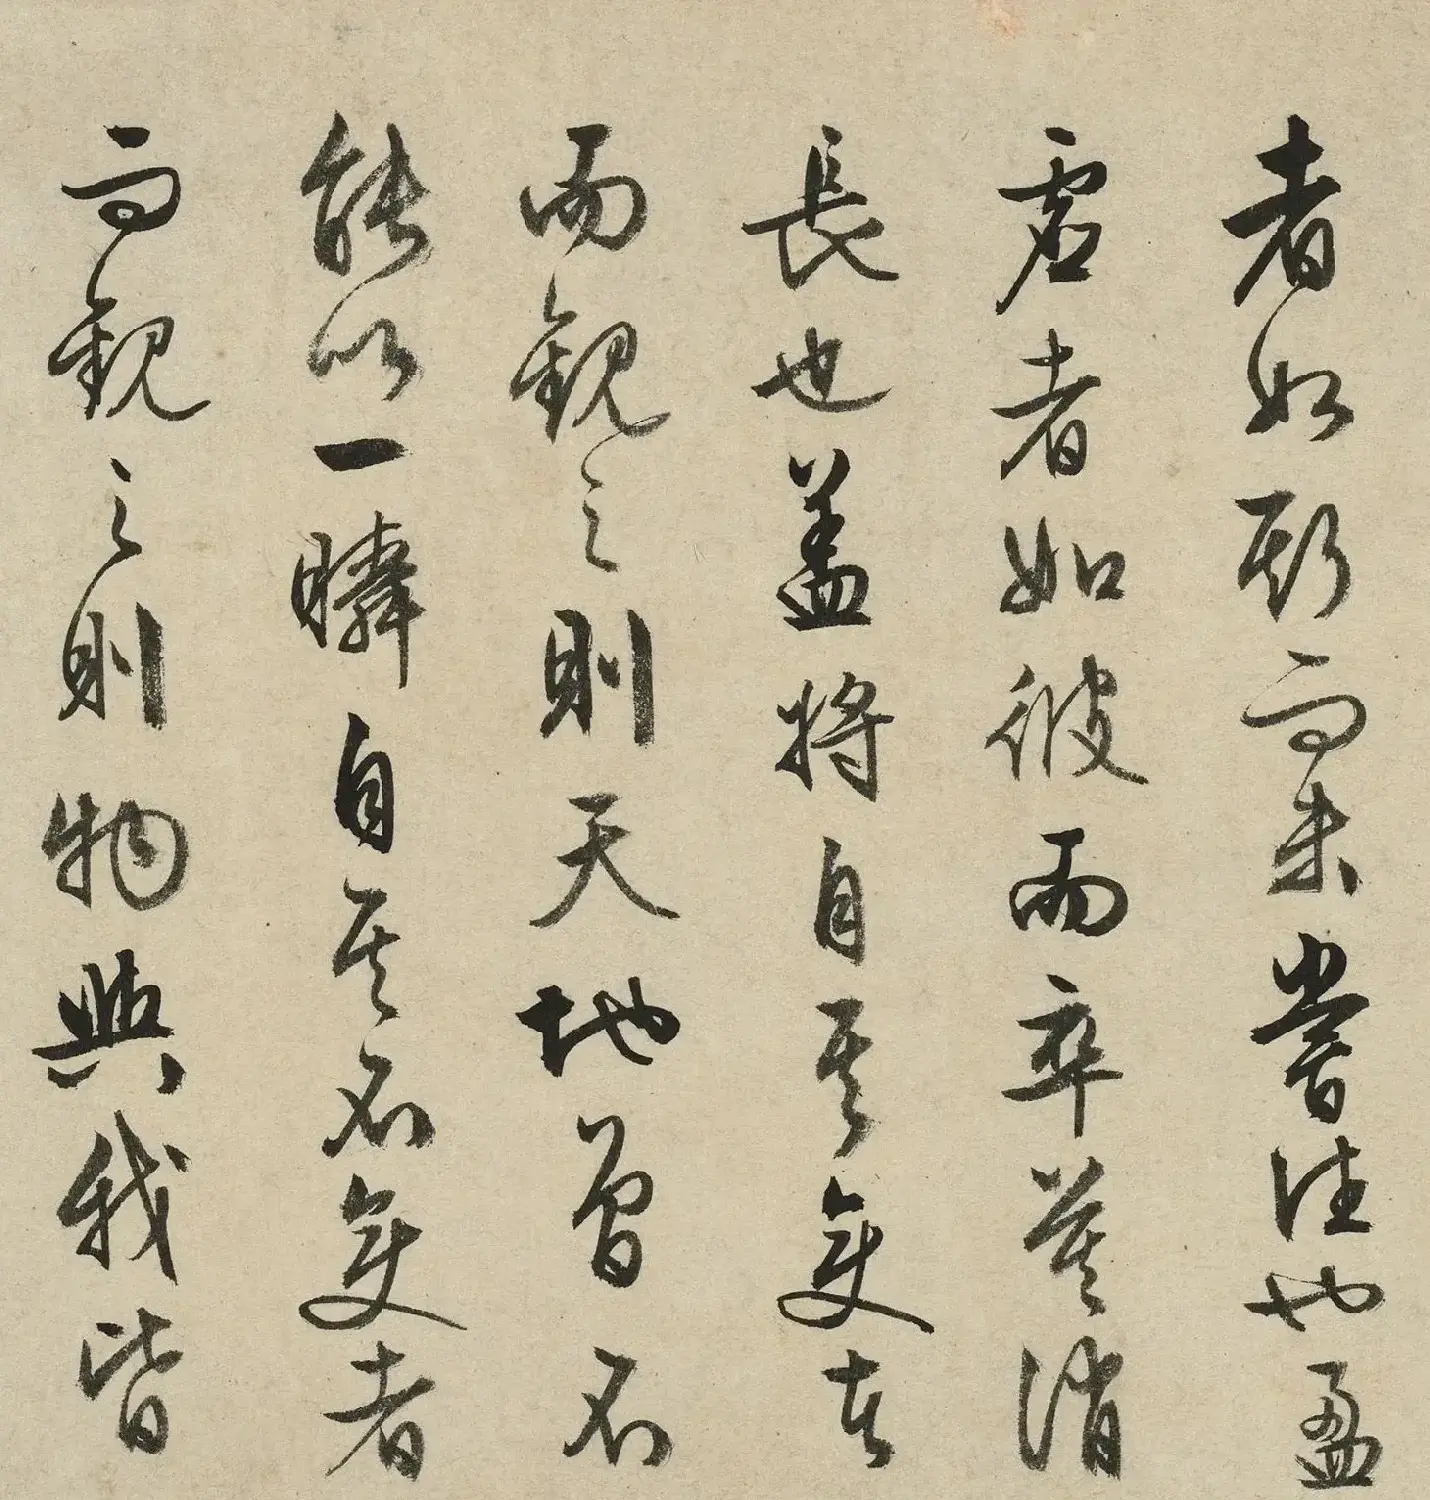 者如斯而未嘗往也盈
虛者如彼而卒莫消
長也盖將自其變者
而觀之則天地曾不
能以一瞬自其不變者
而觀之則物與我皆